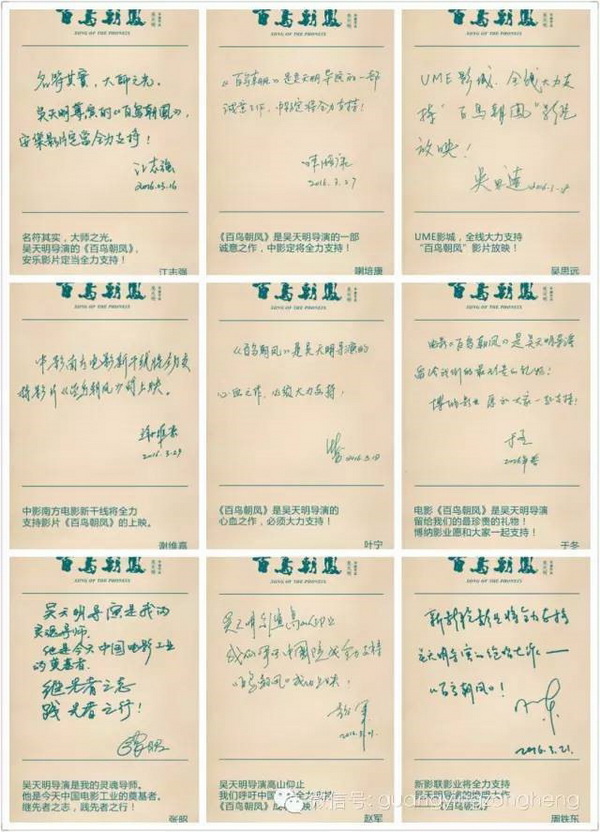 百鸟朝凤
SONG OF THE PHOENIX
名符其实，大师之光。
吴天明导演的《百鸟朝凤》，
安乐影片定当全力支持！
江志强
2016.03.16
名符其实，大师之光。
吴天明导演的《百鸟朝凤》，
安乐影片定当全力支持！
江志强
百鸟朝凤
SONG OF THE PHOENIX
《百鸟朝凤》是吴天明导演的一部
诚意之作，中影定将全力支持！
2016.3.27
《百鸟朝凤》是吴天明导演的一部
诚意之作，中影定将全力支持！
喇培康
百鸟朝凤
SONG OF THE PHOENIX
UME影城，全线大力支
持“百鸟朝凤”影片
放映！
吴思远
UME影城，全线大力支持
“百鸟朝凤”影片放映！
吴思远
百鸟朝凤
中影南方电影新干线将全力支
持影片《百鸟朝凤》的上映。
2016.3.29
中影南方电影新干线将全力
支持影片《百鸟朝凤》的上映。
谢维嘉
百鸟朝凤
《百鸟朝凤》是吴天明导演的
心血之作，必须大力支持！
2016.3.18
《百鸟朝凤》是吴天明导演的
心血之作，必须大力支持！
叶宁
百鸟朝凤
电影《百鸟朝凤》是吴天明导演
留给我们的最珍贵的礼物！
博纳影业愿和大家一起支持！
于冬
电影《百鸟朝凤》是吴天明导演
留给我们的最珍贵的礼物！
博纳影业愿和大家一起支持！
于冬
百鸟朝凤
SONG OF THE PHOENIX
吴天明导演是我的
灵魂导师。
他是今天中国电影工业
的奠基者。
继先者之志
践先者之行！
张昭
吴天明导演是我的灵魂导师。
他是今天中国电影工业的奠基者。
继先者之志，践先者之行！
张昭
百鸟朝凤
SONG OF THE PHOENIX
吴天明导演高山仰止
我们呼吁中国院线全力支持
《百鸟朝凤》成功上映！
赵军
吴天明导演高山仰止
我们呼吁中国
《百鸟朝凤》
赵军
微信号：
百鸟朝凤
SONG OF THE PHOENIX
新影联影业将全力支持
吴天明导演的绝唱大作——
《百鸟朝凤》！
2016.3.21.
新影联影业将全力支持
吴天明导演的绝唱大作
《百鸟朝凤》
周铁东